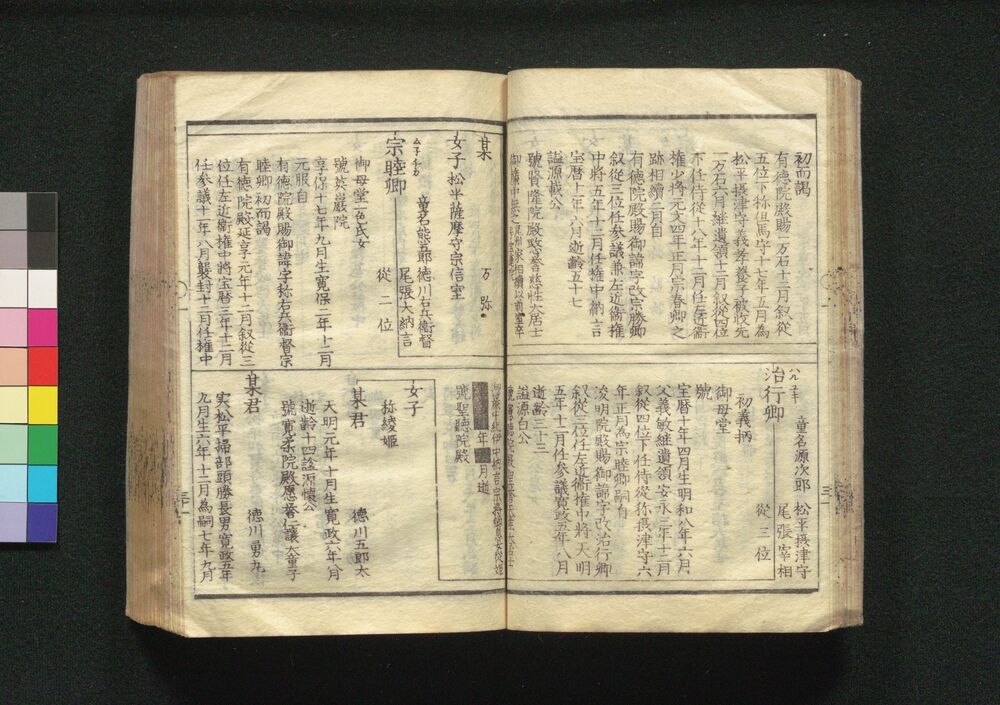 初而謁
有徳院殿賜一万石十二月叙從
五位下称但馬守十七年五月為
松平摂津守義孝養子被改先
一万石六月継遺領十二月叙從四位
下任侍從十八年十二月任左近衛
権少将元文四年正月宗春卿之
跡相續二月自
有徳院殿賜御諱字改宗勝卿
叙從三位任参議兼左近衛権
中将五年十二月任権中納言
宝暦十一年六月逝齢五十七
謚源戴公
號賢隆院殿
某 万弥
女子 松平薩摩守宗信室
ムネチカ
宗睦卿 童名熊五郎 徳川右兵衛督
尾張大納言
從二位
御母堂一色氏女
號英巌院
享保十七年九月生寛保二年十二月
元服自
有徳院殿賜御諱字称右兵衛督宗
睦卿初而謁
有徳院殿延享元年十二月叙從三
位任左近衛権中将宝暦三年十二月
任参議十一年八月襲封十二月任権中
ハルユキ
治行卿 童名源次郎 松平摂津守
尾張宰相
從三位
初義柄
御母堂
號
宝暦十年四月生明和八年六月
父義敏継遺領安永二年十二月
叙從四位下任侍從称摂津守六
年正月為宗睦卿嗣自
浚明院殿賜御諱字改治行卿
叙從三位任左近衛権中将天明
五年十二月任参議寛政五年八月
逝齢三十三
謚源白公
年 月逝
號聖聡院殿
女子
称綾姫
某君 徳川五郎太
天明元年十月生寛政六年八月
逝齢十四諡源懐公
號寛柔院殿應譽仁譲大童子
某君 徳川勇九
実松平掃部頭勝長男寛政五年
九月生六年十二月為嗣七年九月